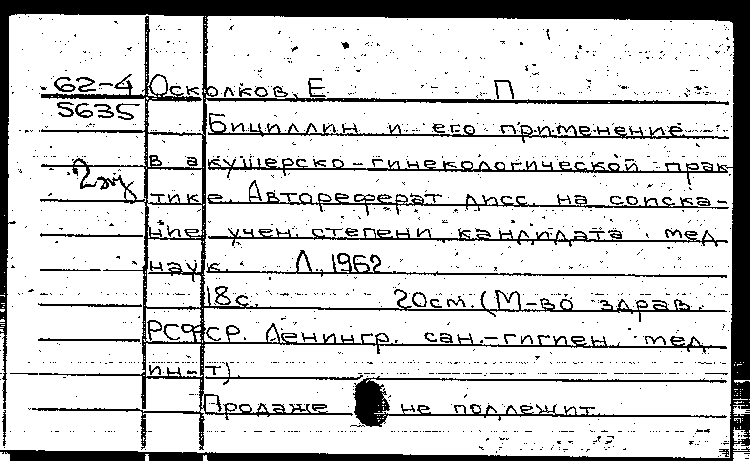 62-4 Осколков, Е П
5635
Бициллин и его применение
в акушерско-гинекологической прак
2 экз
тике. Автореферат дисс. на соиска-
ние учен. степени кандидата мед
наук. Л., 1962
18с. 20см. (М-во здрав.
РСФСР. Ленингр. сан.-гигиен. мед.
ин-т).
Продаже не подлежит